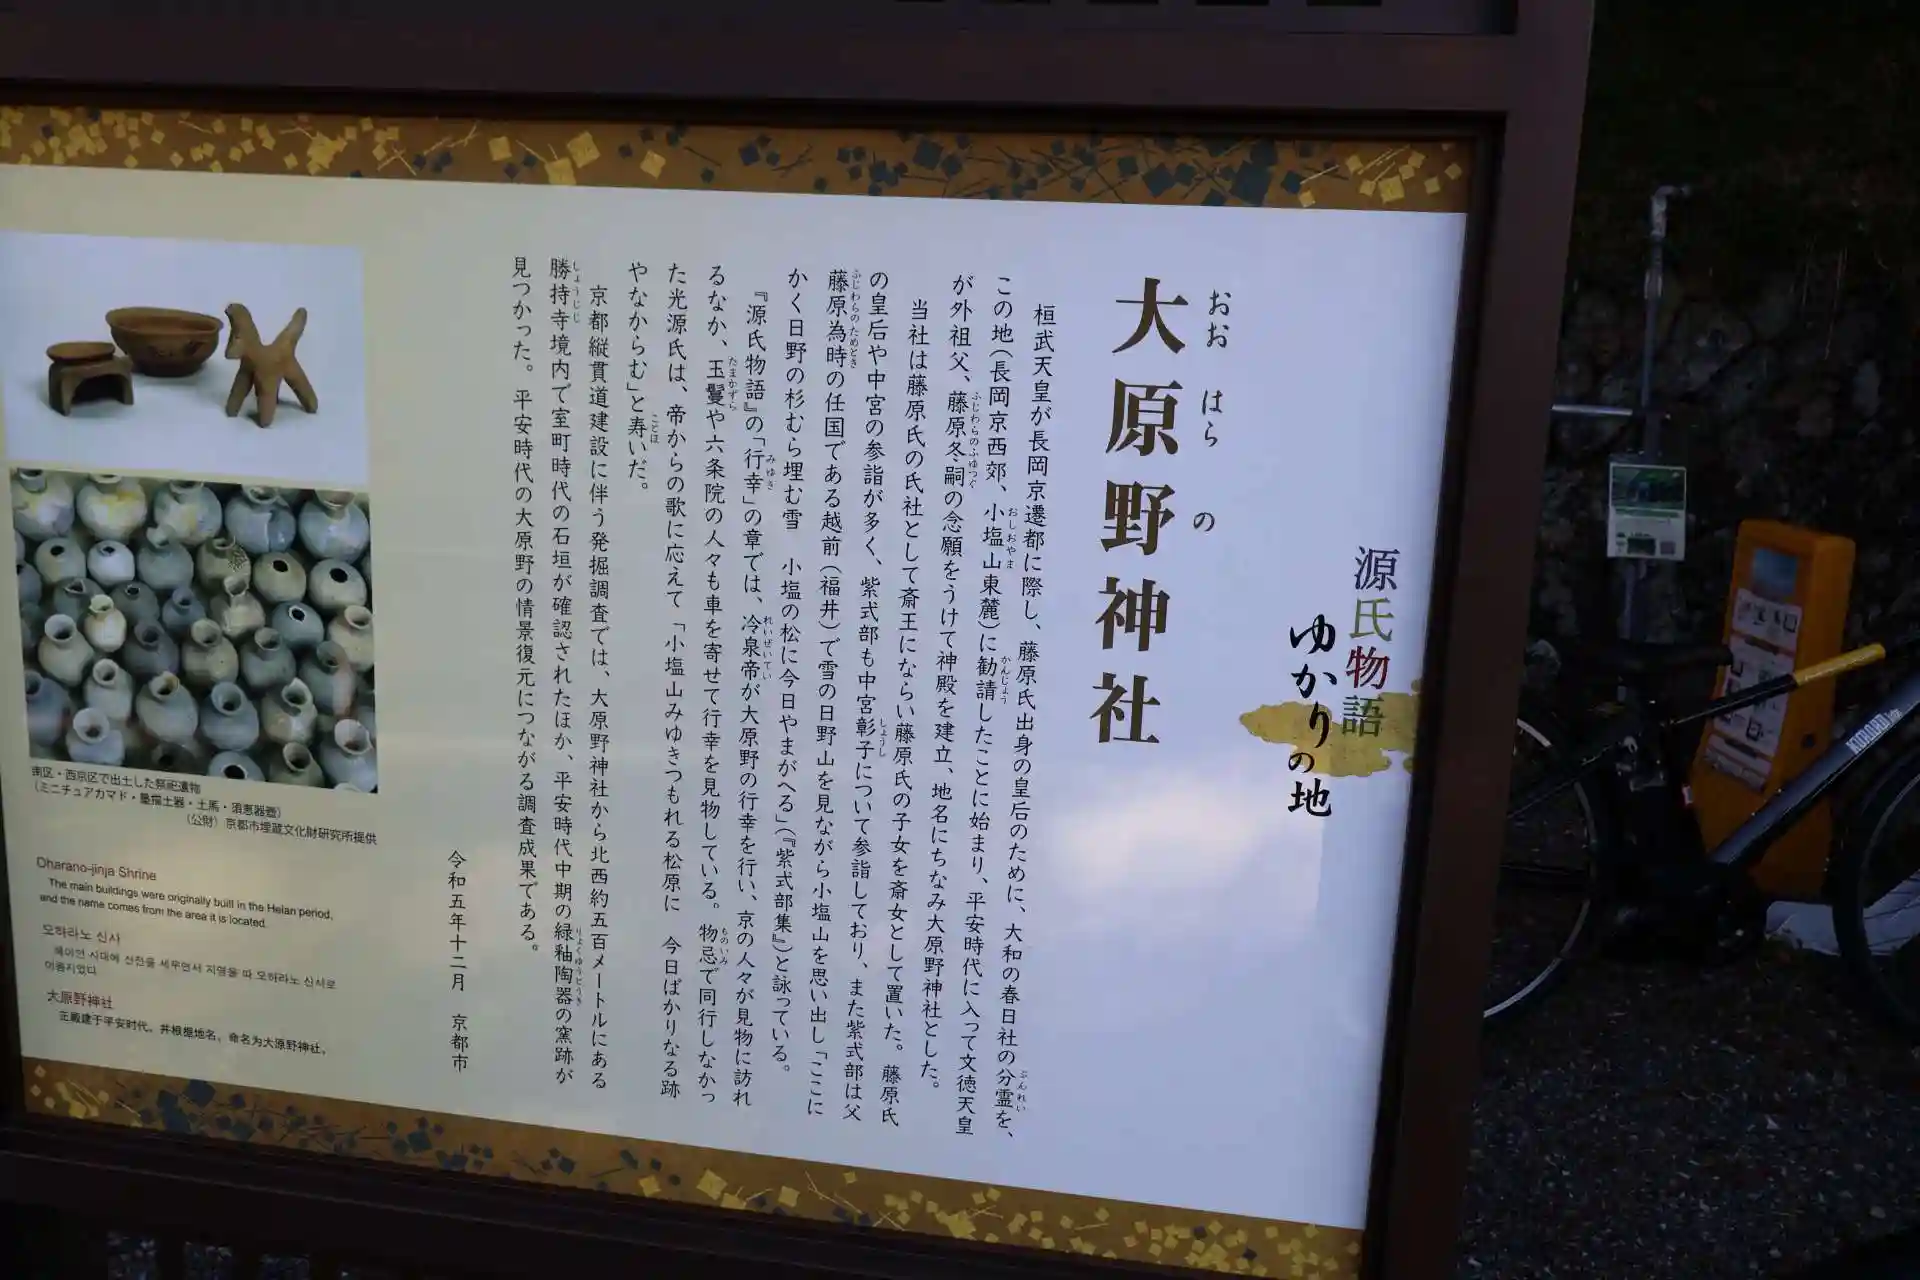 源氏物語
ゆかりの地
おおはらの
大原野神社
桓武天皇が長岡京遷都に際し、藤原氏出身の皇后のために、大和の春日社の分霊を、
この地(長岡京西郊、小塩山東麓)に勧請したことに始まり、平安時代に入って文徳天皇
が外祖父、藤原冬嗣の念願をうけて神殿を建立、地名にちなみ大原野神社とした。
当社は藤原氏の氏社として斎王にならい藤原氏の子女を斎女として置いた。藤原氏
の皇后や中宮の参詣が多く、紫式部も中宮彰子について参詣しており、また紫式部は父
藤原為時の任国である越前(福井)で雪の日野山を見ながら小塩山を思い出し「ここに
かく日野の杉むら埋む雪 小塩の松に今日やまがへる」(『紫式部集』)と詠っている。
『源氏物語』の「行幸」の章では、冷泉帝が大原野の行幸を行い、京の人々が見物に訪れ
るなか、玉鬘や六条院の人々も車を寄せて行幸を見物している。物忌で同行しなかっ
た光源氏は、帝からの歌に応えて「小塩山みゆきつもれる松原に 今日ばかりなる跡
やなからむ」と寿いだ。
京都縦貫道建設に伴う発掘調査では、大原野神社から北西約五百メートルにある
勝持寺境内で室町時代の石垣が確認されたほか、平安時代中期の緑釉陶器の窯跡が
見つかった。平安時代の大原野の情景復元につながる調査成果である。
令和五年十二月 京都市
南区・西京区で出土した祭祀遺物
(ミニチュアカマド・墨描土器・土馬・須恵器壺)
(公財)京都市埋蔵文化財研究所提供
Oharano-jinja Shrine
The main buildings were originally built in the Heian period,
and the name comes from the area it is located.
오하라노 신사
헤이안 시대에 신전을 세우면서 지명을 따 오하라노 신사로
이름지었다.
大原野神社
正殿建于平安时代，并根据地名，命名为大原野神社。